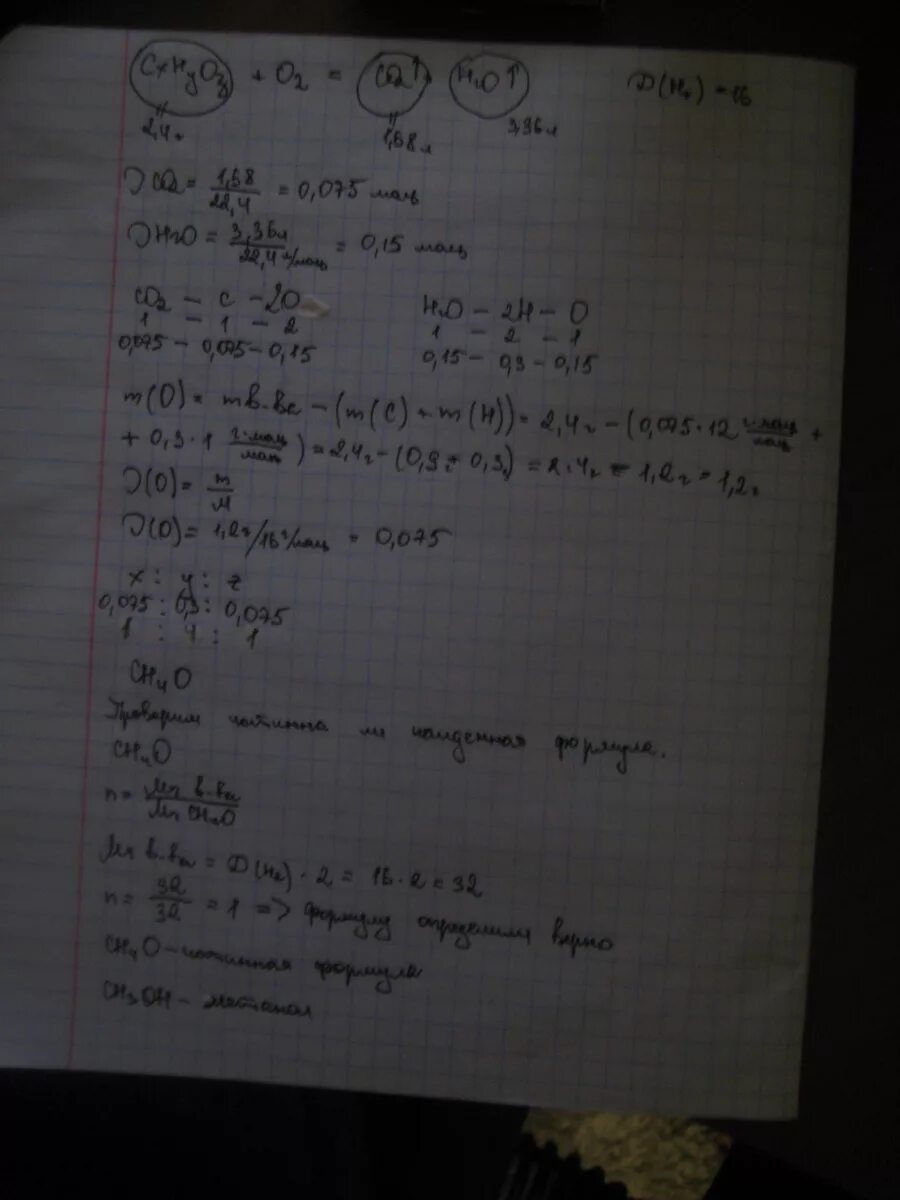 CxHyOz + O2 = CO2↑ H2O↑ D(H2) = 16
2,4г 1,68л 3,36л
ν CO2 = 1,68/22,4 = 0,075 моль
ν H2O = 3,36л/22,4 л/моль = 0,15 моль
CO2 – C – 2O H2O – 2H – O
1 – 1 – 2 1 – 2 – 1
0,075 – 0,075 – 0,15 0,15 – 0,3 – 0,15
m(O) = mв-ва – (m(C) + m(H)) = 2,4г – (0,075·12 г·моль/моль +
+ 0,3·1 г·моль/моль) = 2,4г – (0,9г + 0,3) = 2,4г – 1,2г = 1,2г
ν(O) = m/M
ν(O) = 1,2г/16г/моль = 0,075
x : y : z
0,075 : 0,3 : 0,075
1 : 4 : 1
CH4O
Проверим истинна ли найденная формула.
CH4O
n = Mr в-ва/Mr CH4O
Mr в-ва = D(H2)·2 = 16·2 = 32
n = 32/32 = 1 => формулу определили верно
CH4O – истинная формула
CH3OH – метанол